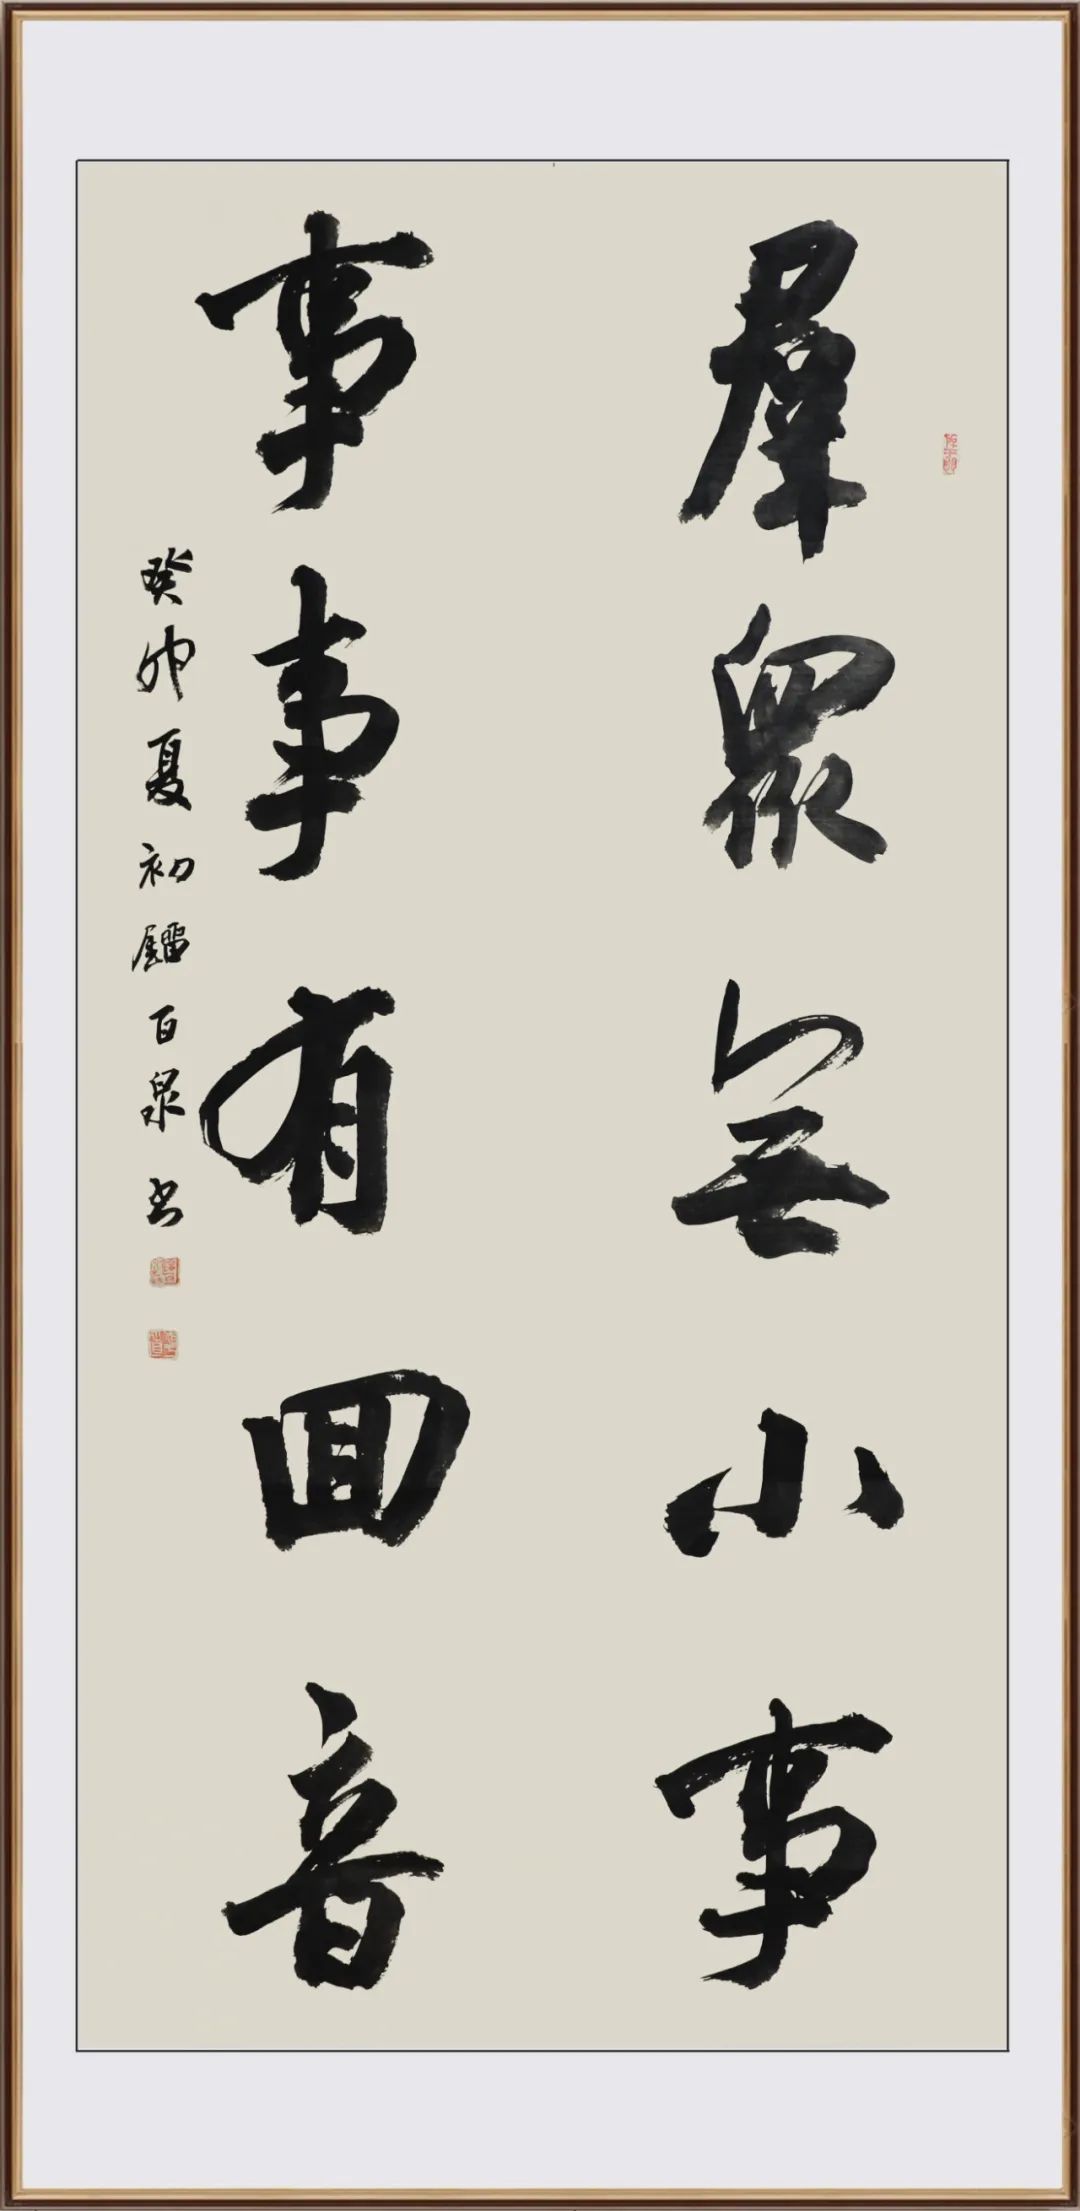 羣眾無小事
事事有回音
癸卯夏初 百泉书